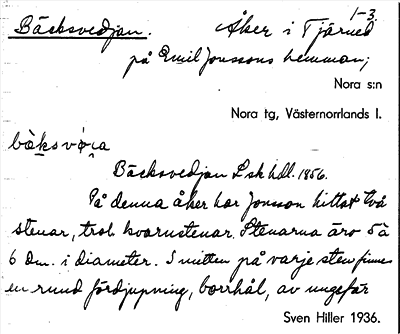 1-3.
Bäcksvedjan. Åker i Tjärned
på Emil Jonssons hemman;
Nora s:n
Nora tg, Västernorrlands l.
Bäcksvedjan L sk hdl. 1856.
På denna åker har Jonsson hittat två
stenar, trol. kvarnstenar. Stenarna äro 5 à
6 dm. i diameter. I mitten på varje sten finnes
en rund fördjupning, borrhål, av ungefär
Sven Hiller 1936.